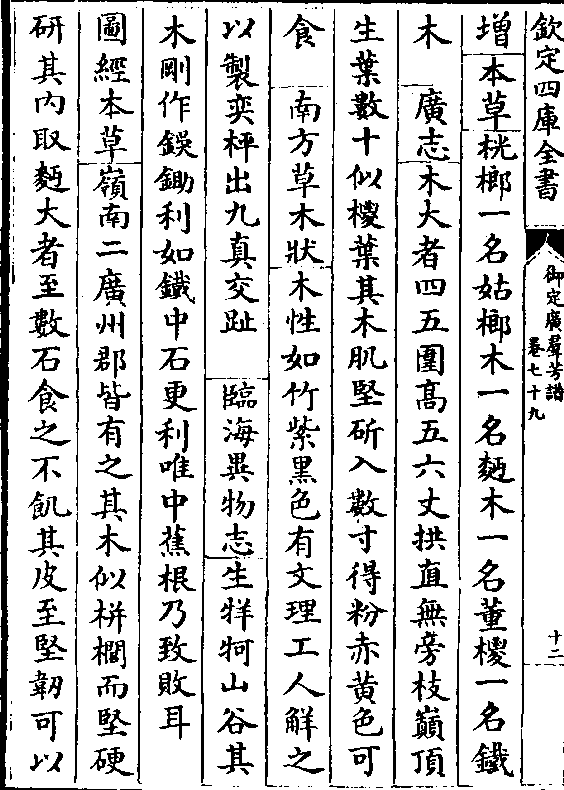 欽定四庫全書
御定廣羣芳譜
卷七十九
十二
增本草桄榔一名姑榔木一名麪木一名董椶一名鐵
木　廣志木大者四五圍高五六丈拱直無旁枝巔頂
生葉數十似椶葉其木肌堅斫入數寸得粉赤黃色可
食　南方草木狀木性如竹紫黑色有文理工人解之
以製奕枰出九真交趾　臨海異物志生牂牁山谷其
木剛作鋘鋤利如鐵中石更利唯中蕉根乃致敗耳
圖經本草嶺南二廣州郡皆有之其木似栟櫚而堅硬
研其内取麪大者至數石食之不飢其皮至堅韌可以